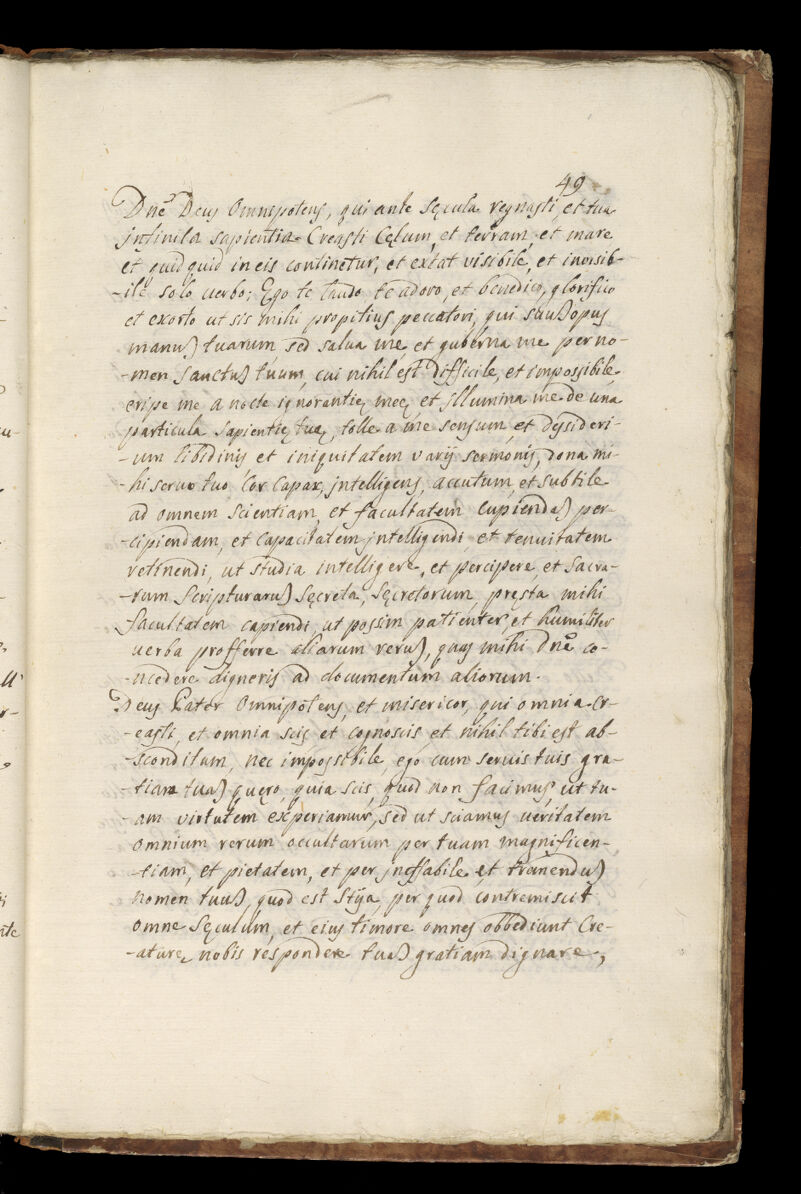 49
Dnē Deus Omnipotens, qui ante Sęcula regnasti, et tua
jnfinita sapientia Creasti Cęlum, et terram, et mare
et quidquid in eis continetur, et extat visibile, et invisib-
-ile solo uerbo; Ego te laudo te adoro, et benedico, glorifico
et exorto ut sis mihi propitius peccatori, qui suū opus
manuū tuarum, sed salua me, et guberna me per no-
-men Sanctuū tuum, cui nihil est difficile, et impossibile,
eripe me a nocte ignorantię meę, et jllumina me de una
particula sapientię tuę, tolle a me sensum, et dęsideri-
-um libidinis et iniquitatem varij sermonis, dona mi-
-hi seruo tuo Cor Capax, jntelligens, accutum, et subtile
ad omnem scientiam, et facultatem Cupiendaū per-
-cipiendam, et Capacitatem jntelligendi, et tenuitatem
retinendi, ut studia intelligere, et percipere, et Sacra-
-rum Scripturaruū Sęcreta, Sęcretorum, pręsta mihi
facultatem capiendi, ut possim patienter, et humiliter
uerba profferre aliarum reruū, quas mihi Dnē co-
-ncedere digneris ad documentum aliorum.
Deus Pater Omnipotens, et misericor, qui omnia cr-
-easti, et omnia scis et cognoscis, et nihil tibi est ab-
-sconditum, nec impossibile, ego cum seruis tuis gra-
-tiam tuaū quęro, quia scis, quod non facimus, ut tu-
-am virtutem experiamur, sed ut sciamus ueritatem
omnium rerum occultarum per tuam magnificen-
-tiam, et pietatem, et per jneffabile, et tremenduū
nomen tuuū, quod est Stÿa, per quod contremiscit
omne Sęculum, et eius timore omnes obbediunt Cre-
-aturę, nobis respondere tuaū gratiam dignare,